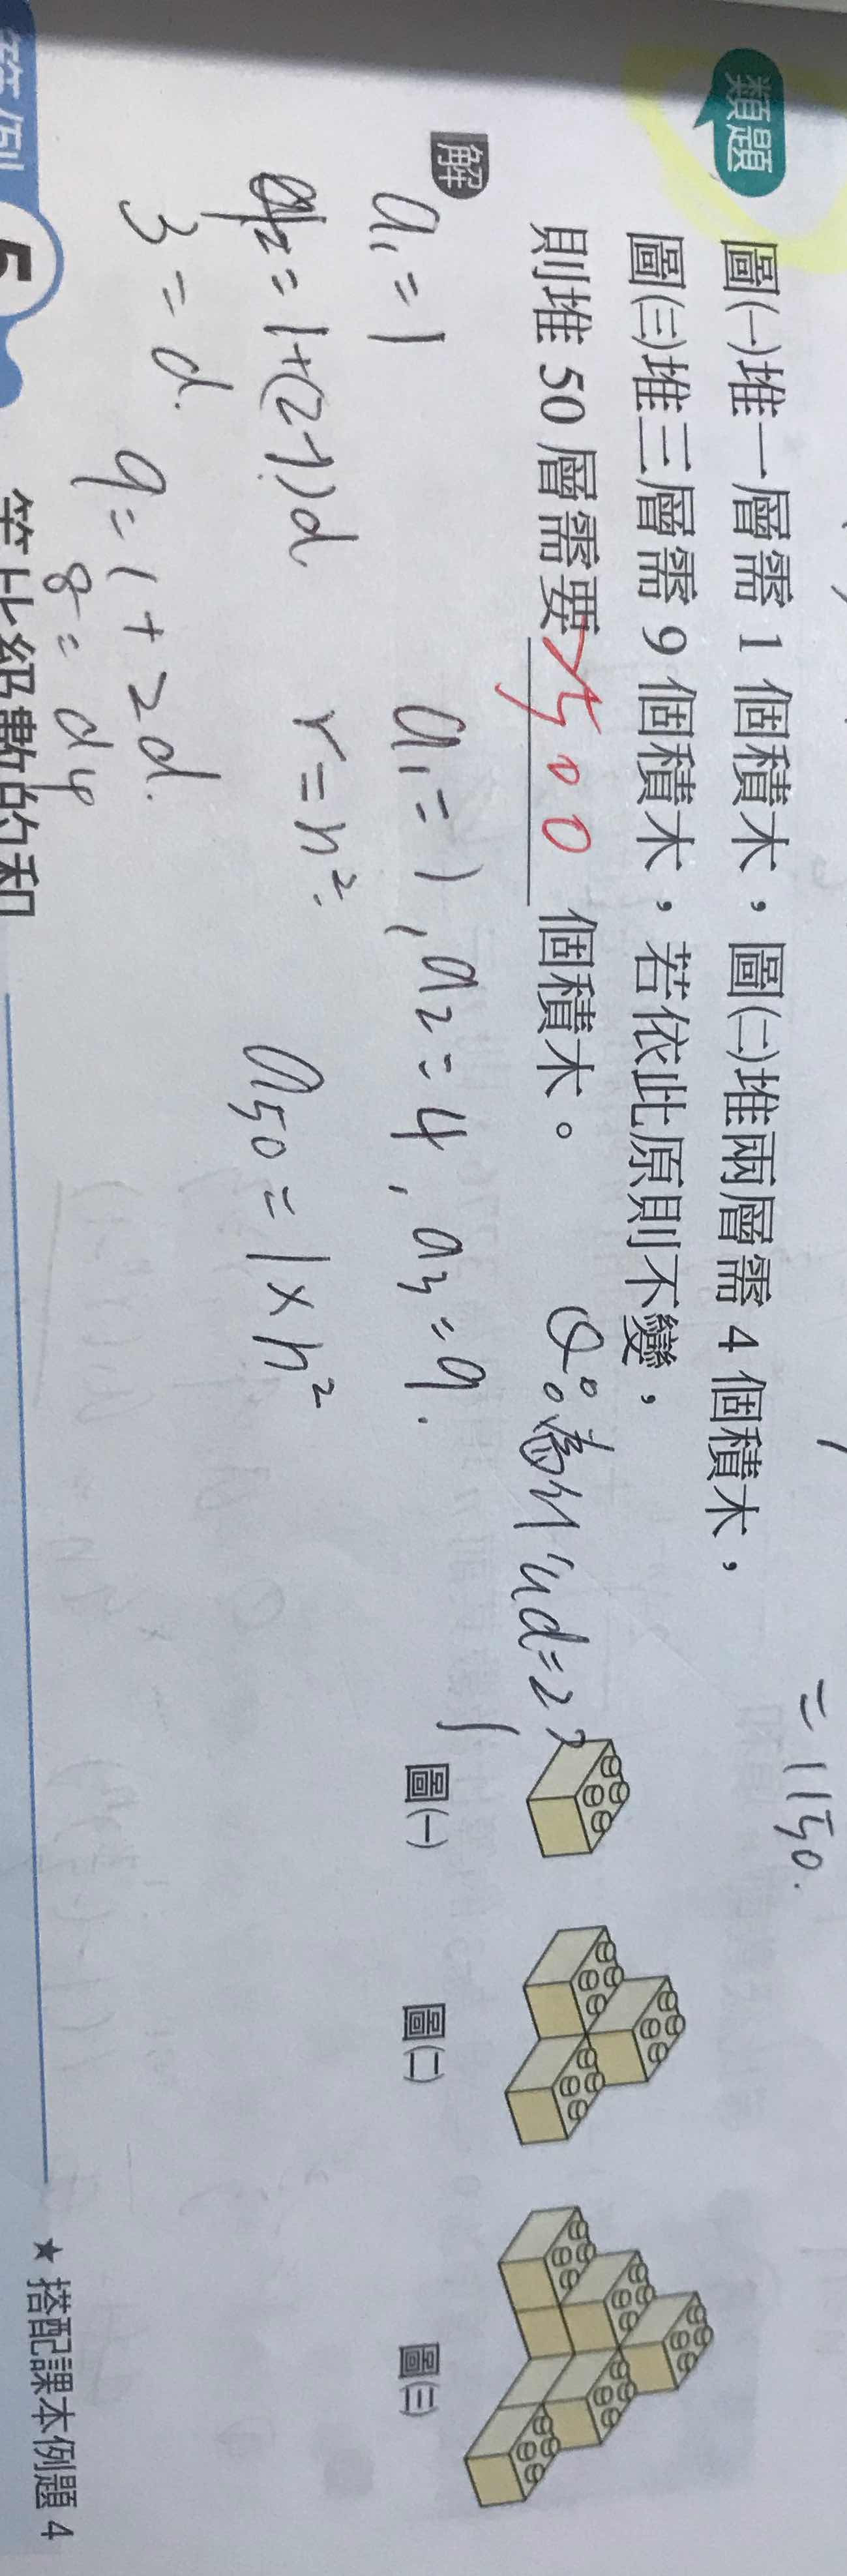 = 1150.
類題
圖㈠堆一層需 1 個積木，圖㈡堆兩層需 4 個積木，
圖㈢堆三層需 9 個積木，若依此原則不變，
則堆 50 層需要 2500 個積木。
Q：為什麼d=2？
解
a₁=1
a₁=1, a₂=4, a₃=9.
圖㈠
圖㈡
圖㈢
=1+(2-1)d
r=n².
a₅₀=1×n²
3=d.
9=1+2d.
8=d4
5
等比級數的和
★搭配課本例題 4